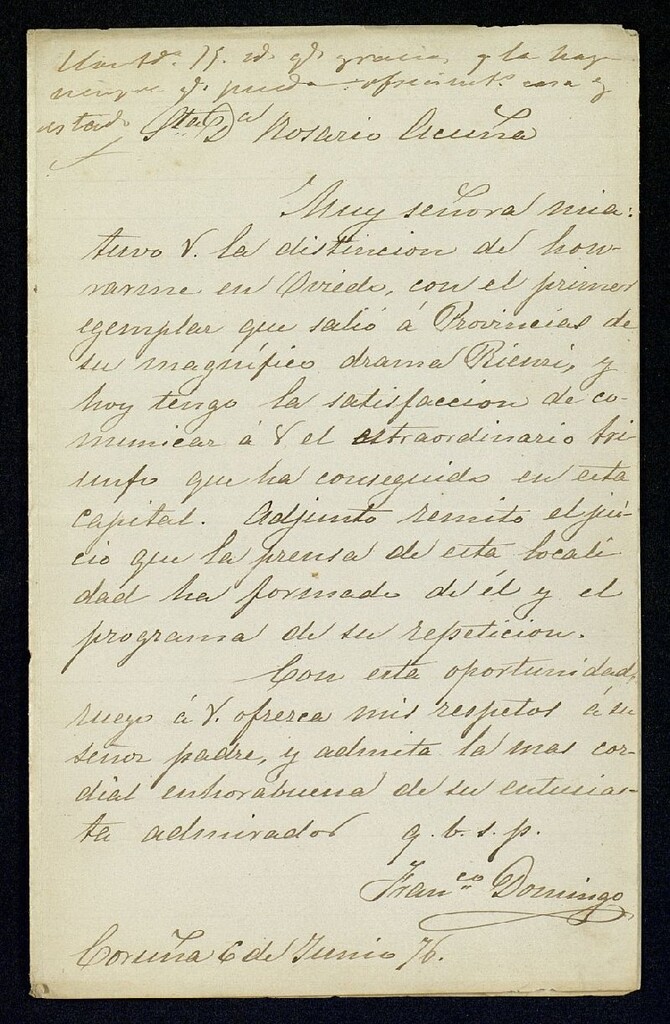 gracias y la
que pueda casa y
estado
Srta Da Rosario Acuña
Muy señora mia:
tuvo V. la distincion de hon-
rarme en Oviedo, con el primer
egemplar que salió á Provincias de
su magnífico drama Rienzi, y
hoy tengo la satisfaccion de co-
municar á V el estraordinario tri-
unfo que ha conseguido en esta
capital. Adjunto remito el jui-
cio que la prensa de esta locali
dad ha formado de él y el
programa de su repeticion.
Con esta oportunidad,
ruego á V. ofrezca mis respetos á su
señor padre, y admita la mas cor-
dial enhorabuena de su entusias-
ta admirador q. b. s. p.
Franco Domingo
Coruña 6 de Junio 76.